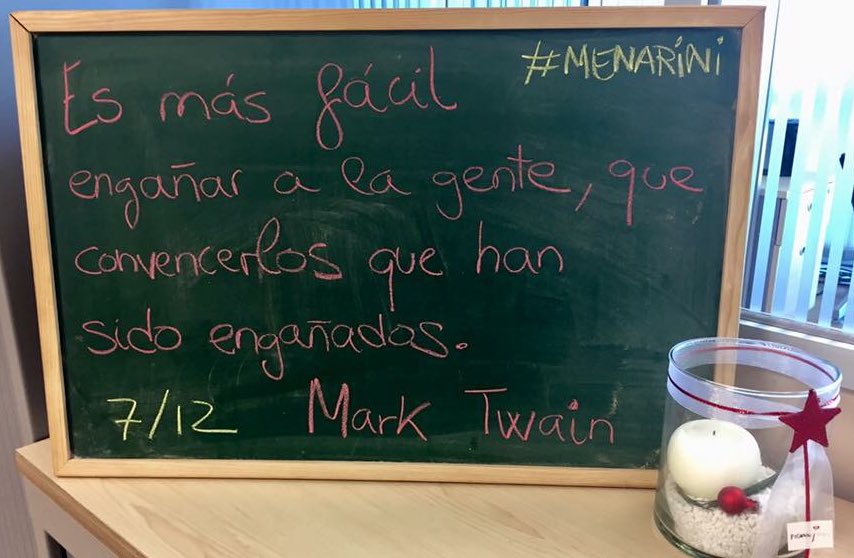 #MENARiNi
Es más fácil
engañar a la gente, que
convencerlos que han
sido engañados.
7/12 Mark Twain